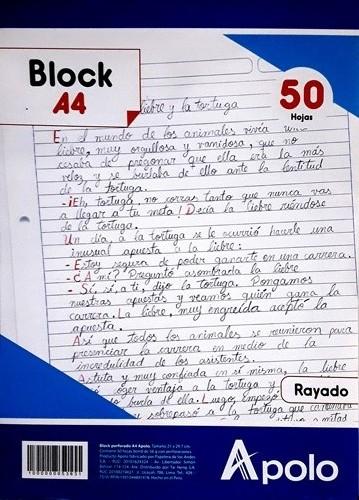 Block
A4
50
Hojas
liebre y la tortuga
En el mundo de los animales vivía una
liebre, muy orgullosa y vanidosa, que no
cesaba de pregonar que ella era la más
veloz y se burlaba de ello ante la lentitud
de la tortuga.
-¡Eh, tortuga, no corras tanto que nunca vas
a llegar a tu meta! Decía la liebre riéndose
de la tortuga.
Un día, a la tortuga se le ocurrió hacerle una
inusual apuesta a la liebre:
- Estoy segura de poder ganarte en una carrera.
- ¿A mí? Preguntó asombrada la liebre
- Sí, sí, a ti, dijo la tortuga. Pongamos
nuestras apuestas y veamos quién gana la
carrera. La liebre, muy engreída aceptó la
apuesta.
Así que todos los animales se reunieron para
presenciar la carrera en medio de la
incredulidad de los asistentes.
Astuta y muy confiada en sí misma, la liebre
coger ventaja a la tortuga y
burla de ella. Luego, empezó
y sobrepasó a la tortuga que caminaba
Rayado
Block perforado A4 Apolo.
Apolo